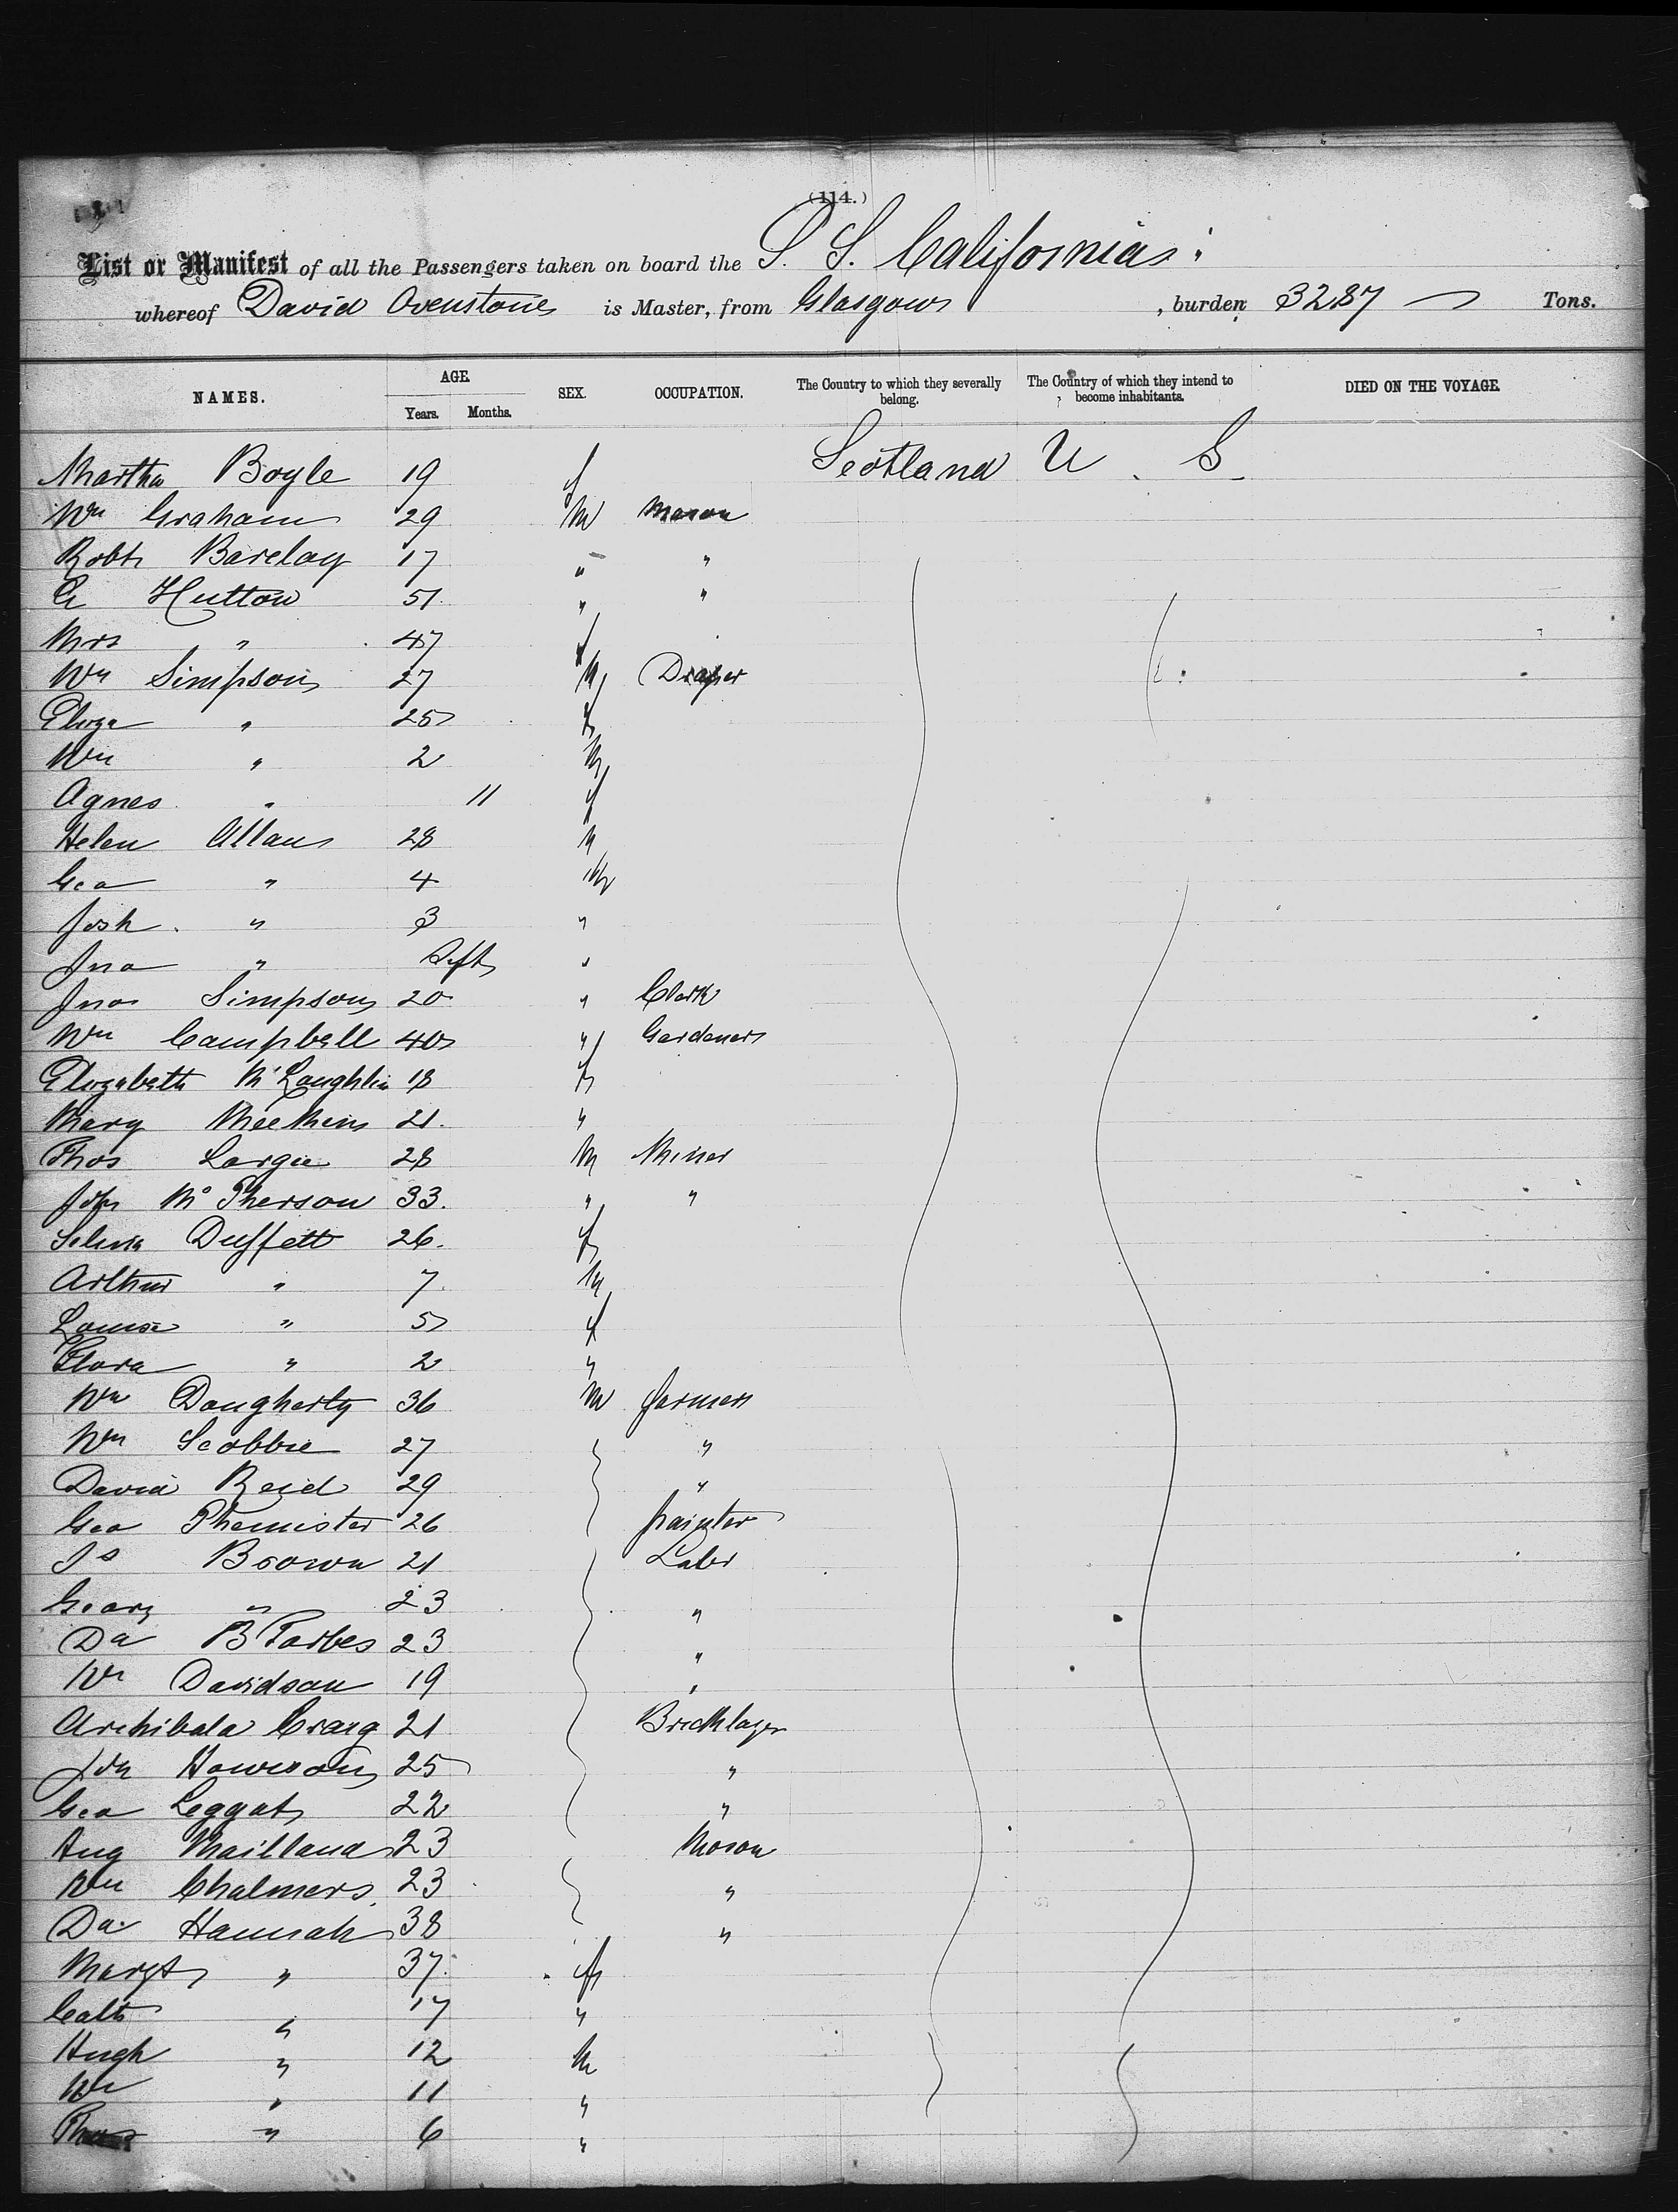 (114.)
List or Manifest of all the Passengers taken on board the S. S. California
whereof David Ovenstone is Master, from Glasgow , burden 3287 Tons.
NAMES. AGE. SEX. OCCUPATION. The Country to which they severally belong. The Country of which they intend to become inhabitants. DIED ON THE VOYAGE.
Years. Months.
Martha Boyle 19 f Scotland U. S.
Wm Graham 29 M Mason
Robt Barclay 17 " "
G Hutton 51 " "
Mrs " 47 f
Wm Simpson 27 M Draper
Eliza " 25 f
Wm " 2 M
Agnes " 11 f
Helen Allan 28 "
Geo " 4 M
Josh " 3 "
Jno " Inft "
Jno Simpson 20 " Clerk
Wm Campbell 40 " Gardener
Elizabeth McLaughlin 18 f
Mary 21 "
Thos Largie 28 M Miner
John McPherson 33 " "
Selina Duffett 26 f
Arthur " 7 M
Louisa " 5 f
Flora " 2 "
Wm Dougherty 36 M farmer
Wm Scobbie 27 "
David Reid 29 "
Geo Phemister 26 painter
Js Brown 21 Labr
Georg " 23 "
Da B Forbes 23 "
Wm Davidson 19 "
Archibald Craig 21 Bricklayer
Jon Howieson 25 "
Geo Leggat 22 "
Aug Maitland 23 Mason
Wm Chalmers 23 "
Da Hannah 38 "
Margt " 37 f
Cath " 17 "
Hugh " 12 M
Wm " 11 "
Thos " 6 "